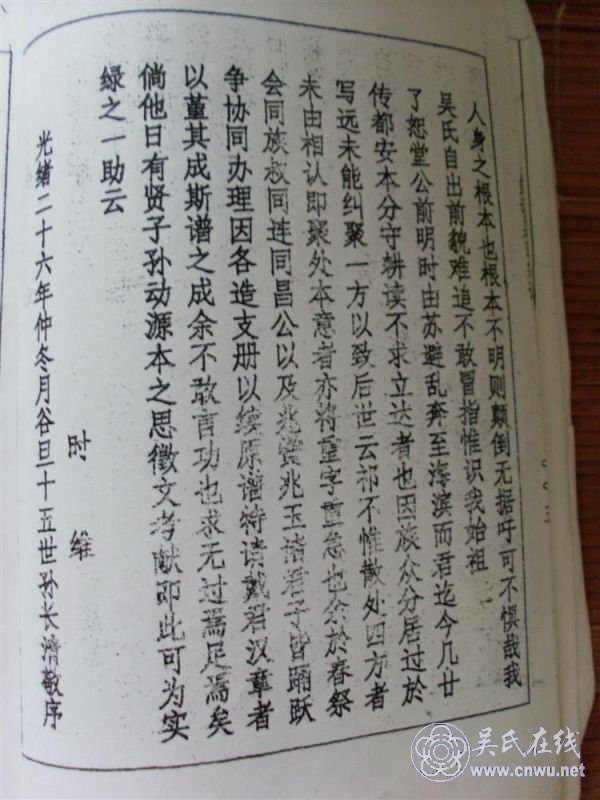 人身之根本也根本不明则颠倒无据吁可不惧哉我
吴氏自出前貌难追不敢冒指惟识我始祖
了恕堂公前明时由苏避乱奔至海滨而君迄今几廿
传都安本分守耕读不求立达者也因族众分居过於
写远未能纠聚一方以致后世云祁不惟散处四方者
未由相认即聚处本意者亦将重字重急也余於春祭
会同族叔同连同昌公以及兆赏兆玉诸君子皆踊跃
争协同办理因各造支册以续原谱特请戴君汉章者
以董其成斯谱之成余不敢言功也求无过焉足焉矣
倘他日有贤子孙动源本之思徵文考献即此可为实
绿之一助云
时 维
光绪二十六年仲冬月谷旦十五世孙长清敬序
吴氏在线
www.cnwu.net